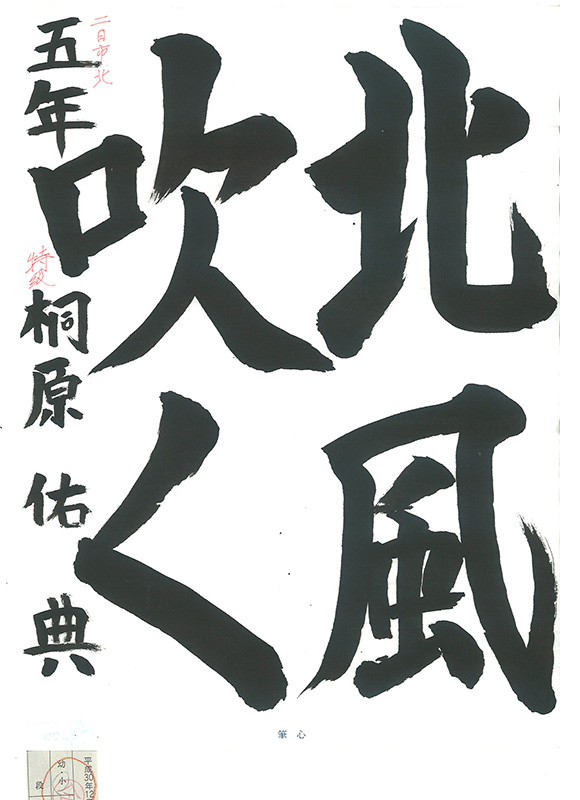 北風
吹く
二日市北
五年 特級 桐原佑典
心筆
平成30年12
幼・小
段